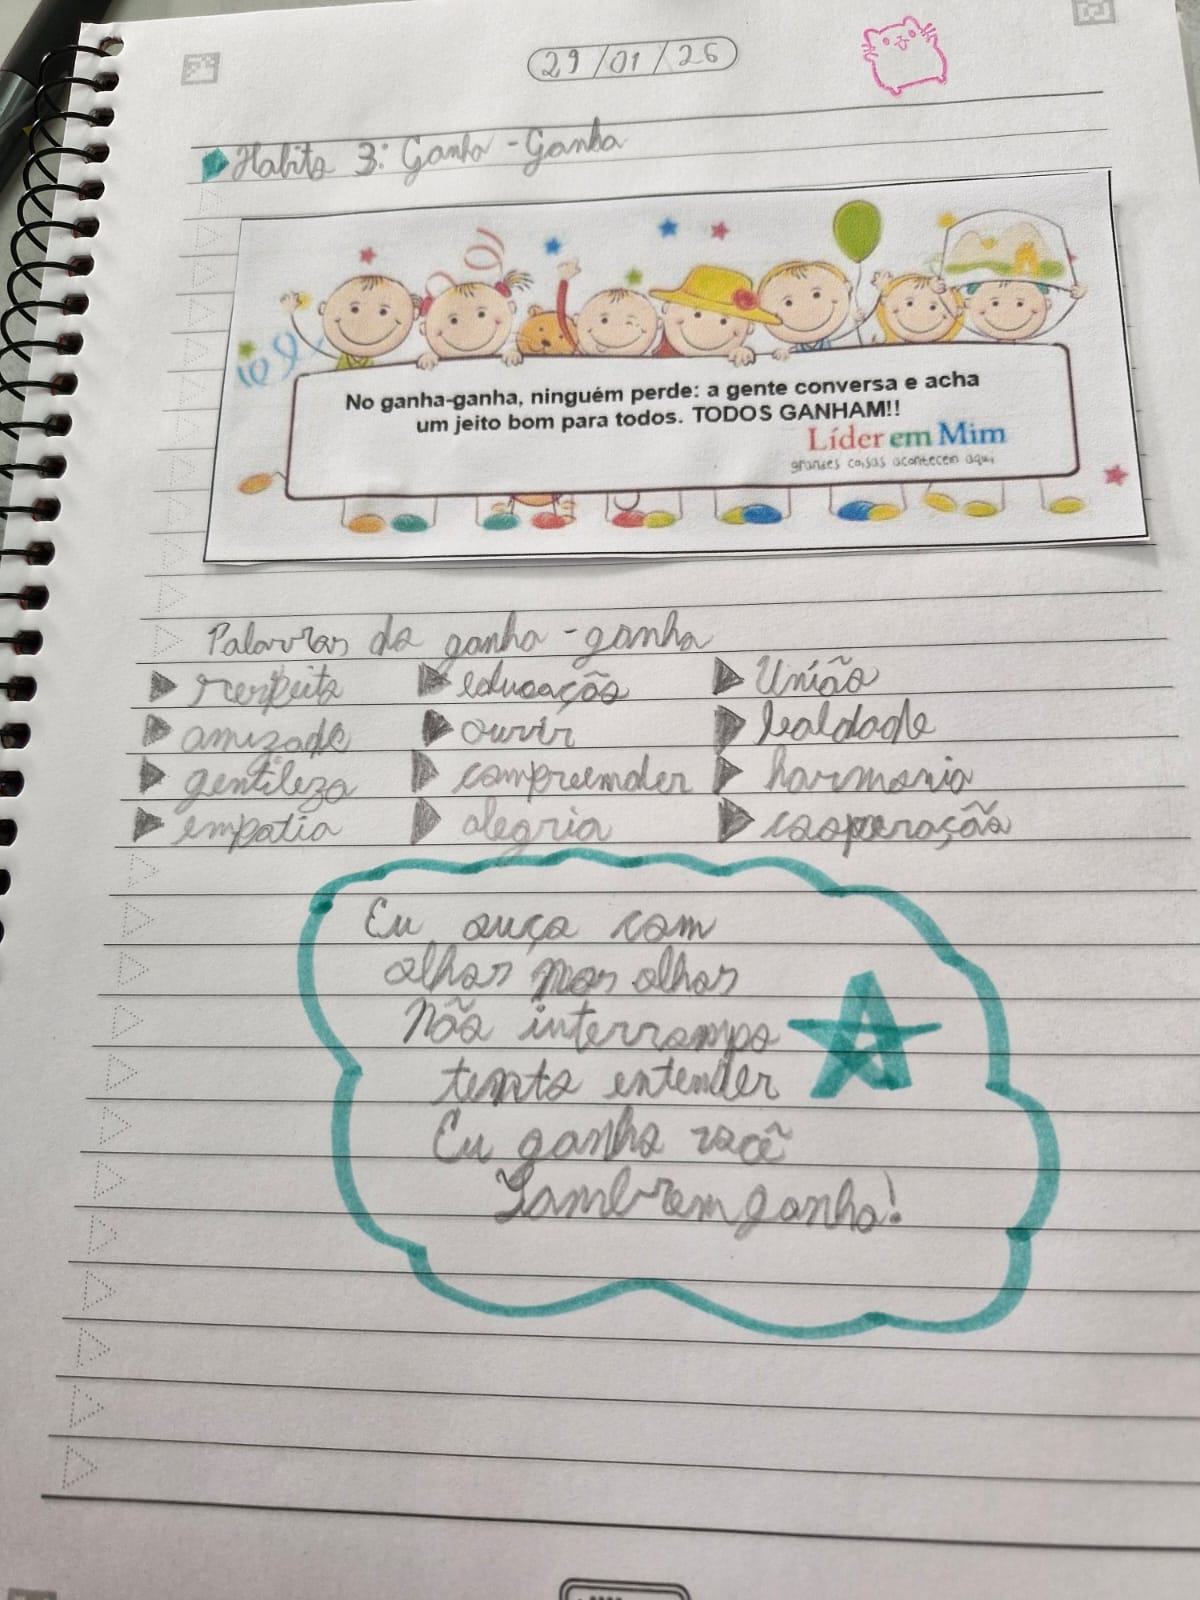 29/01/26
Habito 3: Ganha-Ganha
No ganha-ganha, ninguém perde: a gente conversa e acha
um jeito bom para todos. TODOS GANHAM!!
Líder em Mim
grandes coisas acontecem aqui
Palavras do ganha-ganha
respeito educação União
amizade ouvir lealdade
gentileza compreender harmonia
empatia alegria cooperação
Eu ouço com
olhos nos olhos
Não interrompo
tento entender
Eu ganho você
Também ganha!